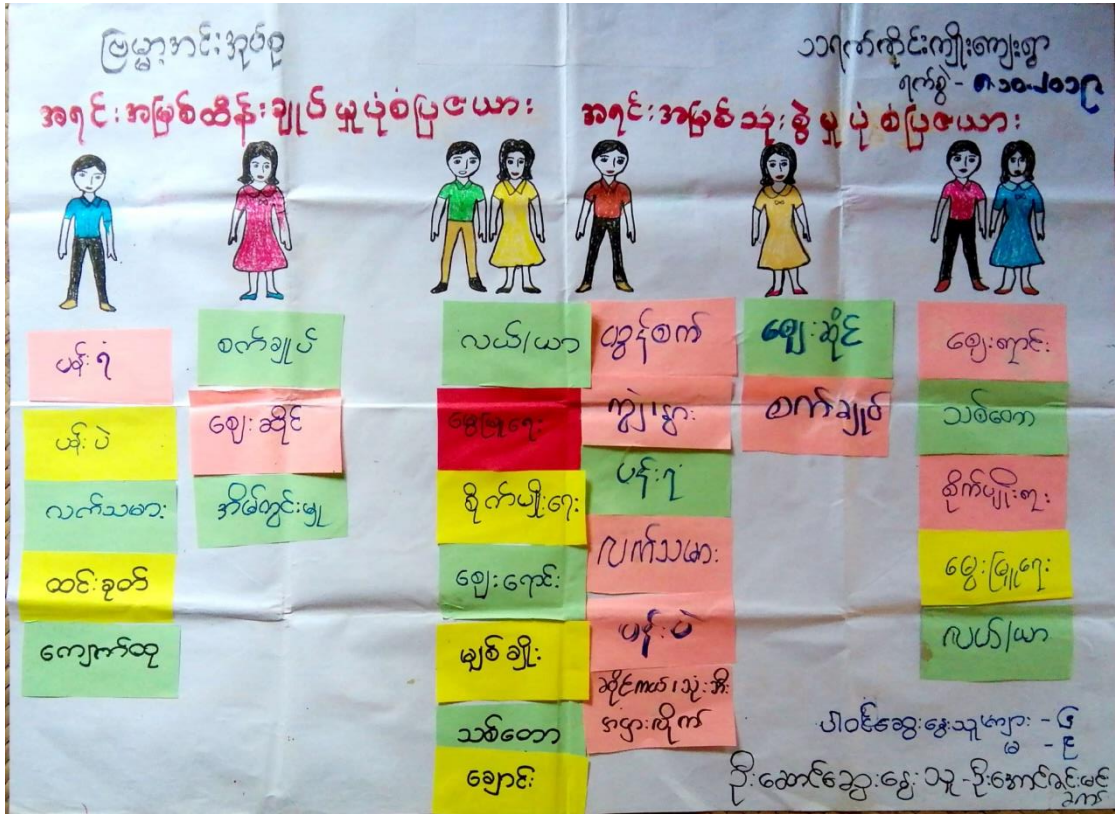 ဗြမ္မာ့အင်းအုပ်စု
၁၁ရက်ကိုင်းကျိုးကျေးရွာ
ရက်စွဲ - ၈.၁၀.၂၀၁၉
အရင်းအမြစ်ထိန်းချုပ်မှုပုံစံပြဇယား
အရင်းအမြစ်သုံးစွဲမှုပုံစံပြဇယား
ပန်းရံ
ပန်းပဲ
လက်သမား
ထင်းခုတ်
ကျောက်ထု
စက်ချုပ်
ဈေးဆိုင်
အိမ်တွင်းမှု
လယ်/ယာ
မွေးမြူရေး
စိုက်ပျိုးရေး
ဈေးရောင်း
မျှစ်ချိုး
သစ်တော
ချောင်း
ထွန်စက်
ကျွဲ၊နွား
ပန်းရံ
လက်သမား
ပန်းပဲ
ဆိုင်ကယ်၊သုံးဘီး
အငှားလိုက်
ဈေးဆိုင်
စက်ချုပ်
ဈေးရောင်း
သစ်တော
စိုက်ပျိုးရေး
မွေးမြူရေး
လယ်/ယာ
ပါဝင်ဆွေးနွေးသူများ -
ဦးဆောင်ဆွေးနွေးသူ - ဦးအောင်